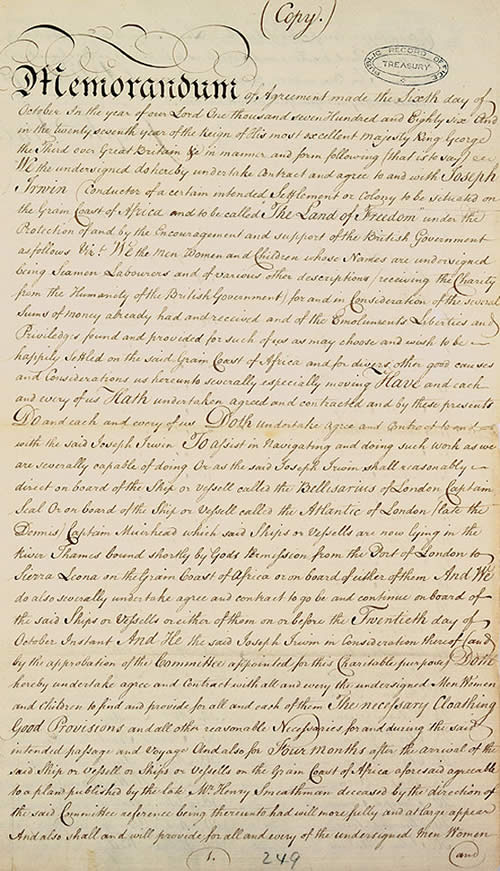 (Copy.)
PUBLIC RECORD OFFICE
TREASURY
Memorandum of Agreement made the Sixth day of
October In the year of our Lord One thousand seven Hundred and Eighty Six And
in the twenty seventh year of the Reign of His most excellent majesty King George
the Third over Great Britain &c in manner and form following (that is to say)
We the undersigned do hereby undertake Contract and agree to and with Joseph
Irwin (Conductor of a certain intended Settlement or Colony to be situated on
the Grain Coast of Africa and to be called The Land of Freedom under the
Protection of and by the Encouragement and support of the British Government
as follows Vizt. We the Men Women and Children whose Names are undersigned
being Seamen Labourers and of various other descriptions (receiving the Charity
from the Humanity of the British Government) for and in Consideration of the several
Sums of money already had and received and of the Emoluments Liberties and
Priviledges found and provided for such of us as may choose and wish to be
happily Settled on the said Grain Coast of Africa and for divers other good causes
and Considerations us hereunto severally especially moving Have and each
and every of us Hath undertaken agreed and contracted and by these presents
Do and each and every of us Doth undertake agree and Contract to and
with the said Joseph Irwin To assist in Navigating and doing such work as we
are severally capable of doing Or as the said Joseph Irwin shall reasonably
direct on board of the Ship or Vessell called the Bellisarius of London Captain
Seal Or on board of the Ship or Vessell called the Atlantic of London (late the
Demis) Captain Muirhead which said Ships or Vessells are now lying in the
River Thames bound shortly by Gods Permission from the Port of London to
Sierra Leona on the Grain Coast of Africa or on board of either of them And We
do also severally undertake agree and contract to go be and continue on board of
the said Ships or Vessells or either of them on or before the Twentieth day of
October Instant And He the said Joseph Irwin in Consideration thereof (and
by the approbation of the Committee appointed for this Charitable purpose) Doth
hereby undertake agree and Contract with all and every the undersigned Men Women
and children to find and provide for all and each of them The necessary Cloathing
Good Provisions and all other reasonable Necessaries for and during the said
intended passage and Voyage And also for Four months after the arrival of the
said Ship or Vessell or Ships or Vessells on the Grain Coast of Africa aforesaid agreeable
to a plan published by the late Mr. Henry Smeathman deceased by the direction of
the said Committee reference being thereunto had will more fully and at large appear
And also shall and will provide for all and every of the undersigned Men Women
and
1. 249